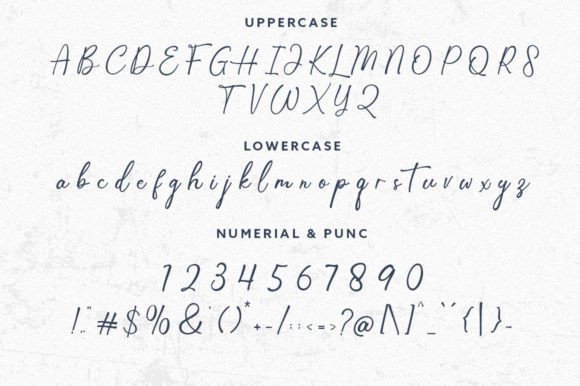 UPPERCASE
A B C D E F G H I J K L M N O P Q R S
T V W X Y Z
LOWERCASE
a b c d e f g h i j k l m n o p q r s t u v w x y z
NUMERIAL & PUNC
1 2 3 4 5 6 7 8 9 0
! " .. # $ % & ' ( ) * + - / : : < = > ? @ [ \ ] ^ _ ` ` { | } -